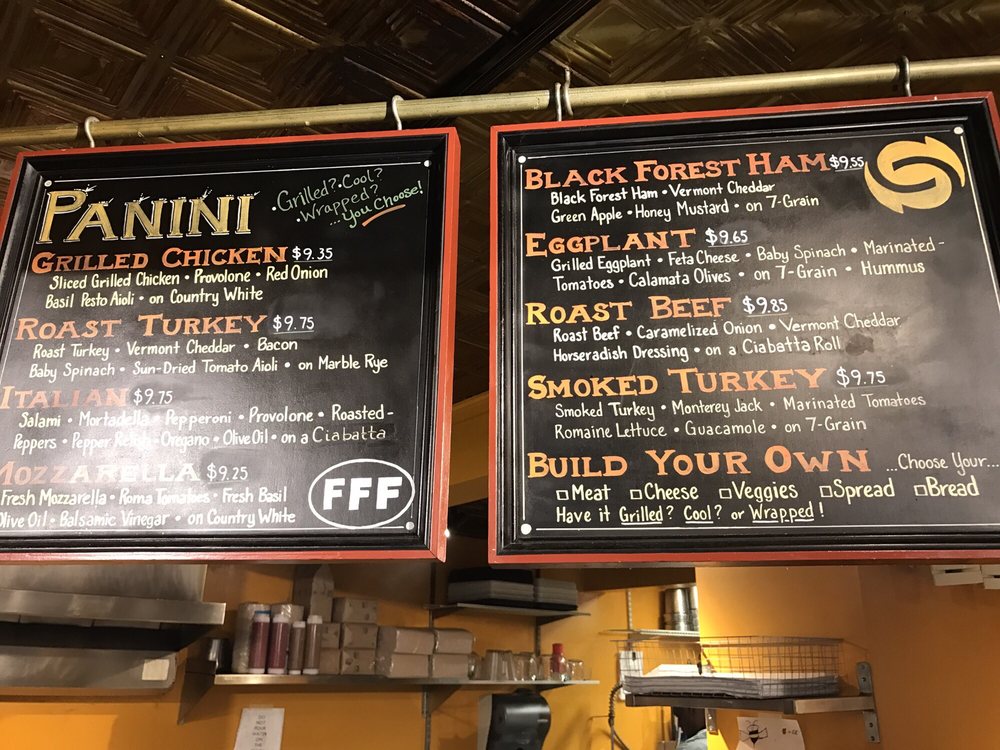 PANINI
·Grilled?·Cool?
·Wrapped?
...You Choose!
GRILLED CHICKEN $9.35
Sliced Grilled Chicken • Provolone • Red Onion
Basil Pesto Aioli • on Country White
ROAST TURKEY $9.75
Roast Turkey • Vermont Cheddar • Bacon
Baby Spinach • Sun-Dried Tomato Aioli • on Marble Rye
ITALIAN $9.75
Salami • Mortadella • Pepperoni • Provolone • Roasted-
Peppers • Pepper Relish • Oregano • Olive Oil • on a Ciabatta
MOZZARELLA $9.25
Fresh Mozzarella • Roma Tomatoes • Fresh Basil
Olive Oil • Balsamic Vinegar • on Country White
FFF
BLACK FOREST HAM $9.55
Black Forest Ham • Vermont Cheddar
Green Apple • Honey Mustard • on 7-Grain
EGGPLANT $9.65
Grilled Eggplant • Feta Cheese • Baby Spinach • Marinated-
Tomatoes • Calamata Olives • on 7-Grain • Hummus
ROAST BEEF $9.85
Roast Beef • Caramelized Onion • Vermont Cheddar
Horseradish Dressing • on a Ciabatta Roll
SMOKED TURKEY $9.75
Smoked Turkey • Monterey Jack • Marinated Tomatoes
Romaine Lettuce • Guacamole • on 7-Grain
BUILD YOUR OWN ...Choose Your...
□Meat □Cheese □Veggies □Spread □Bread
Have it Grilled? Cool? or Wrapped!
DO
NOT
POUR
WATER
ON
THE